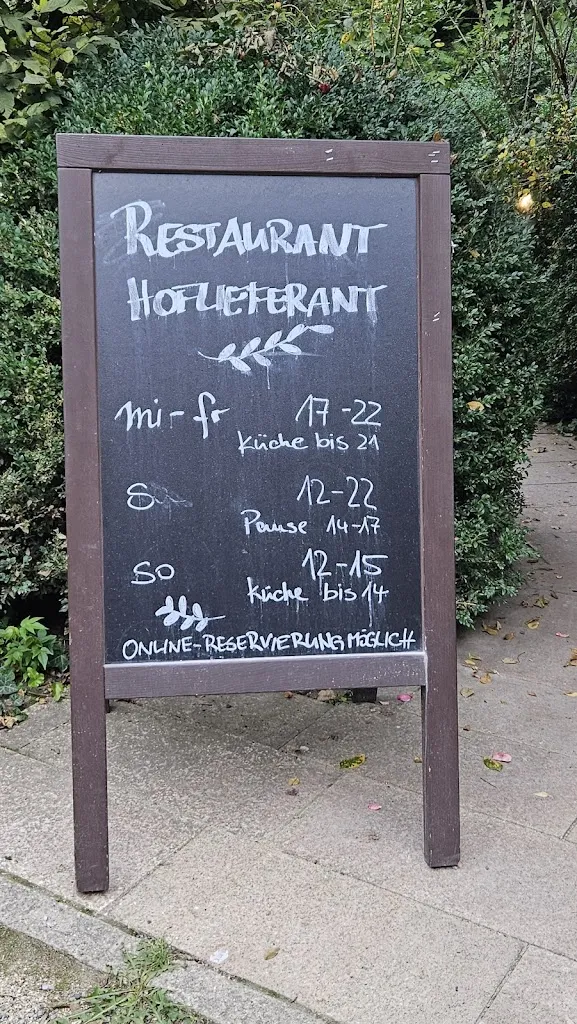 RESTAURANT
HOFLIEFERANT
Mi - fr 17 - 22
Küche bis 21
Sa 12 - 22
Pause 14 - 17
So 12 - 15
Küche bis 14
ONLINE-RESERVIERUNG MÖGLICH